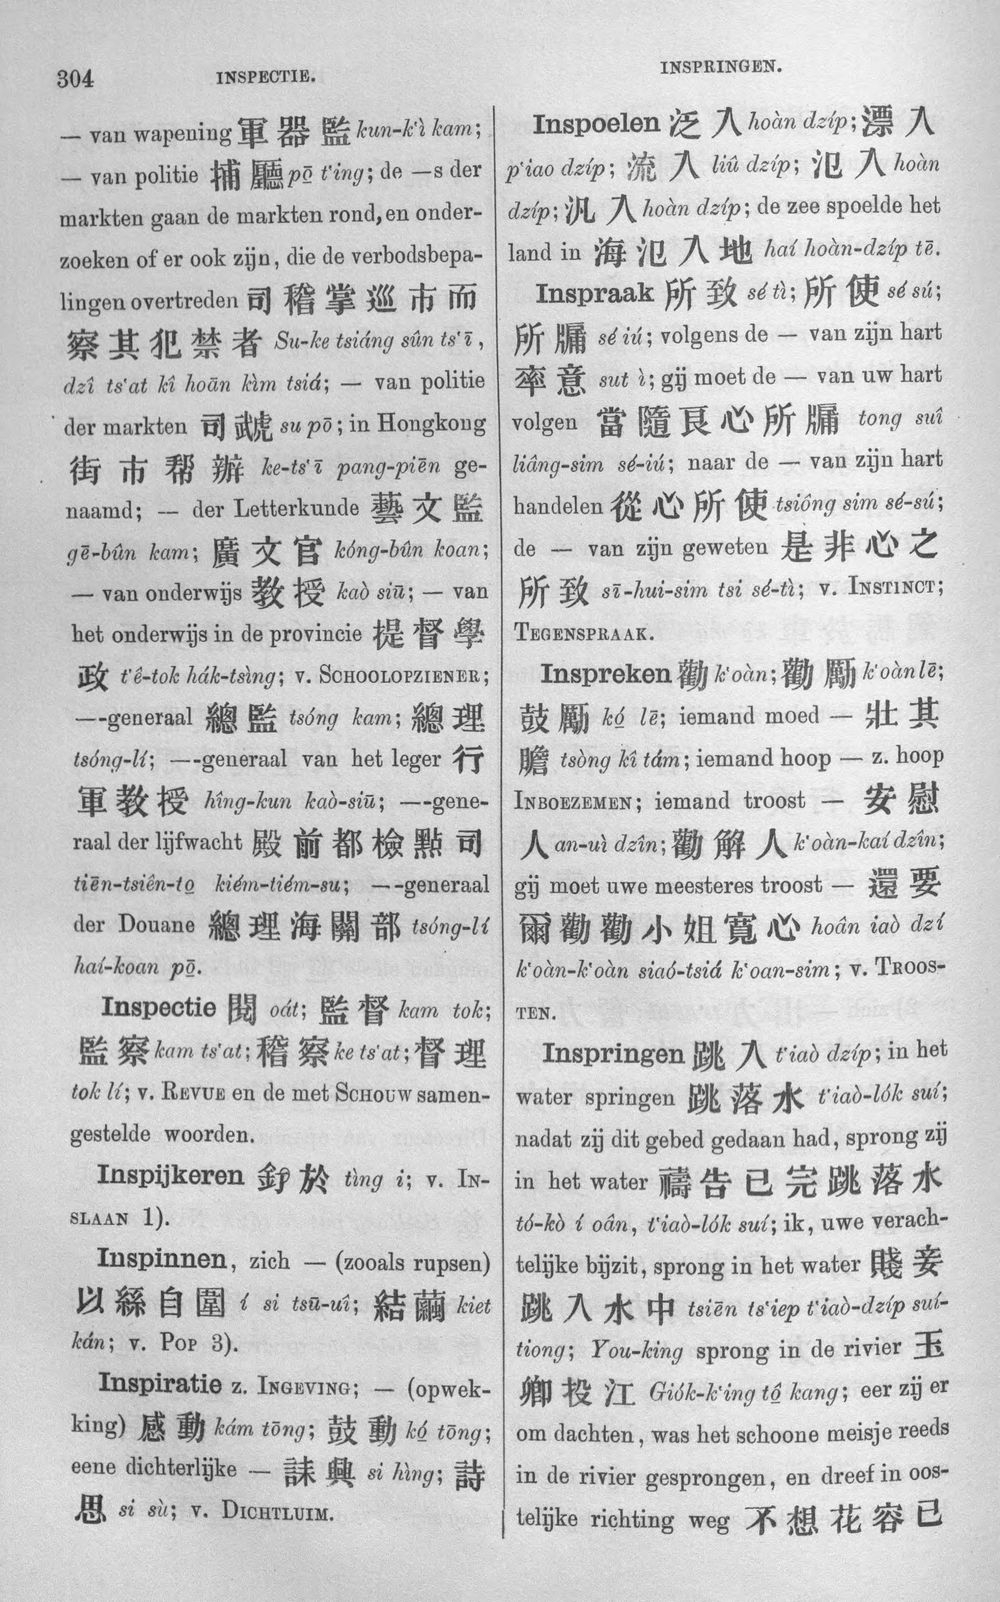 304
INSPECTIE.
INSPRINGEN.
— van wapening 軍器監 kun-k‘ì kam;
— van politie 捕廳 pō͘ t‘ing; de —s der
markten gaan de markten rond, en onder-
zoeken of er ook zijn, die de verbodsbepa-
lingen overtreden 司稽掌巡市而
察其犯禁者 Su-ke tsiáng sûn ts‘ī,
dzî ts‘at kî hoān kìm tsiá; — van politie
der markten 司虣 su pō; in Hongkong
街市帮辦 ke-ts‘ī pang-piēn ge-
naamd; — der Letterkunde 藝文監
gē-bûn kam; 廣文官 kóng-bûn koan;
— van onderwijs 教授 kaò siū; — van
het onderwijs in de provincie 提督學
政 t‘ê-tok hák-tsìng; v. SCHOOLOPZIENER;
—-generaal 總監 tsóng kam; 總理
tsóng-lí; —-generaal van het leger 行
軍教授 hîng-kun kaò-siū; —-gene-
raal der lijfwacht 殿前都檢點司
tiēn-tsiên-to͘ kiém-tiém-su; —-generaal
der Douane 總理海關部 tsóng-lí
haí-koan pō͘.
Inspectie 閱 oát; 監督 kam tok;
監察 kam ts‘at; 稽察 ke ts‘at; 督理
tok lí; v. REVUE en de met SCHOUW samen-
gestelde woorden.
Inspijkeren 釘於 tìng i; v. IN-
SLAAN 1).
Inspinnen, zich — (zooals rupsen)
以絲自圍 í si tsū-uî; 結繭 kiet
kán; v. POP 3).
Inspiratie z. INGEVING; — (opwek-
king) 感動 kám tōng; 鼓動 kó͘ tōng;
eene dichterlijke — 詠興 si hìng; 詩
思 si sù; v. DICHTLUIM.
Inspoelen 泛入 hoàn dzíp; 漂入
p‘iao dzíp; 流入 liû dzíp; 氾入 hoàn
dzíp; 汎入 hoàn dzíp; de zee spoelde het
land in 海氾入地 haí hoàn-dzíp tē.
Inspraak 所致 sé tì; 所使 sé sú;
所牖 sé iú; volgens de — van zijn hart
率意 sut ì; gij moet de — van uw hart
volgen 當隨良心所牖 tong suî
liâng-sim sé-iú; naar de — van zijn hart
handelen 從心所使 tsiông sim sé-sú;
de — van zijn geweten 是非心之
所致 sī-hui-sim tsi sé-tì; v. INSTINCT;
TEGENSPRAAK.
Inspreken 勸 k‘oàn; 勸勵 k‘oàn lē;
鼓勵 kó͘ lē; iemand moed — 壯其
膽 tsòng kî tám; iemand hoop — z. hoop
INBOEZEMEN; iemand troost — 安慰
人 an-uì dzîn; 勸解人 k‘oàn-kaí dzîn;
gij moet uwe meesteres troost — 還要
爾勸勸小姐寬心 hoân iaò dzí
k‘oàn-k‘oàn siaó-tsiá k‘oan-sim; v. TROOS-
TEN.
Inspringen 跳入 t‘iaò dzíp; in het
water springen 跳落水 t‘iaò-lók suí;
nadat zij dit gebed gedaan had, sprong zij
in het water 禱告已完跳落水
tó-kò í oân, t‘iaò-lók suí; ik, uwe verach-
telijke bijzit, sprong in het water 賤妾
跳入水中 tsiēn ts‘iep t‘iaò-dzíp suí-
tiong; You-king sprong in de rivier 玉
卿投江 Giók-k‘ing tô͘ kang; eer zij er
om dachten, was het schoone meisje reeds
in de rivier gesprongen, en dreef in oos-
telijke richting weg 不想花容已